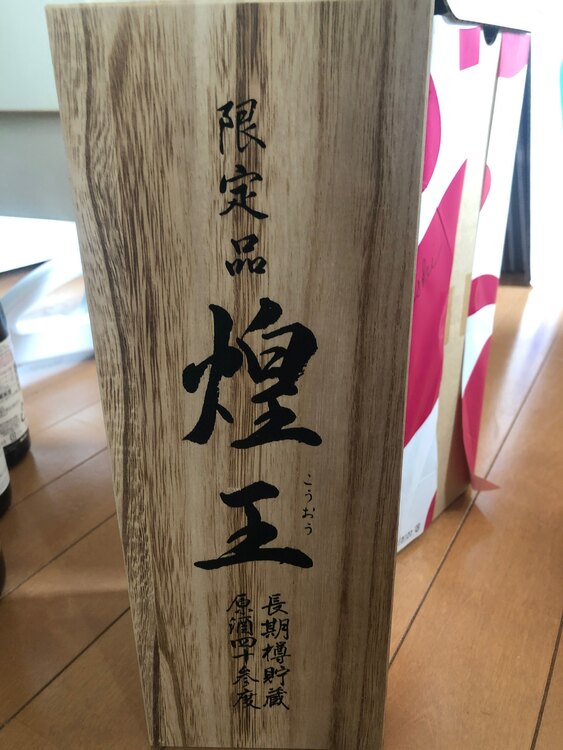 限定品
煌王
こうおう
長期樽貯蔵
原酒四十参度